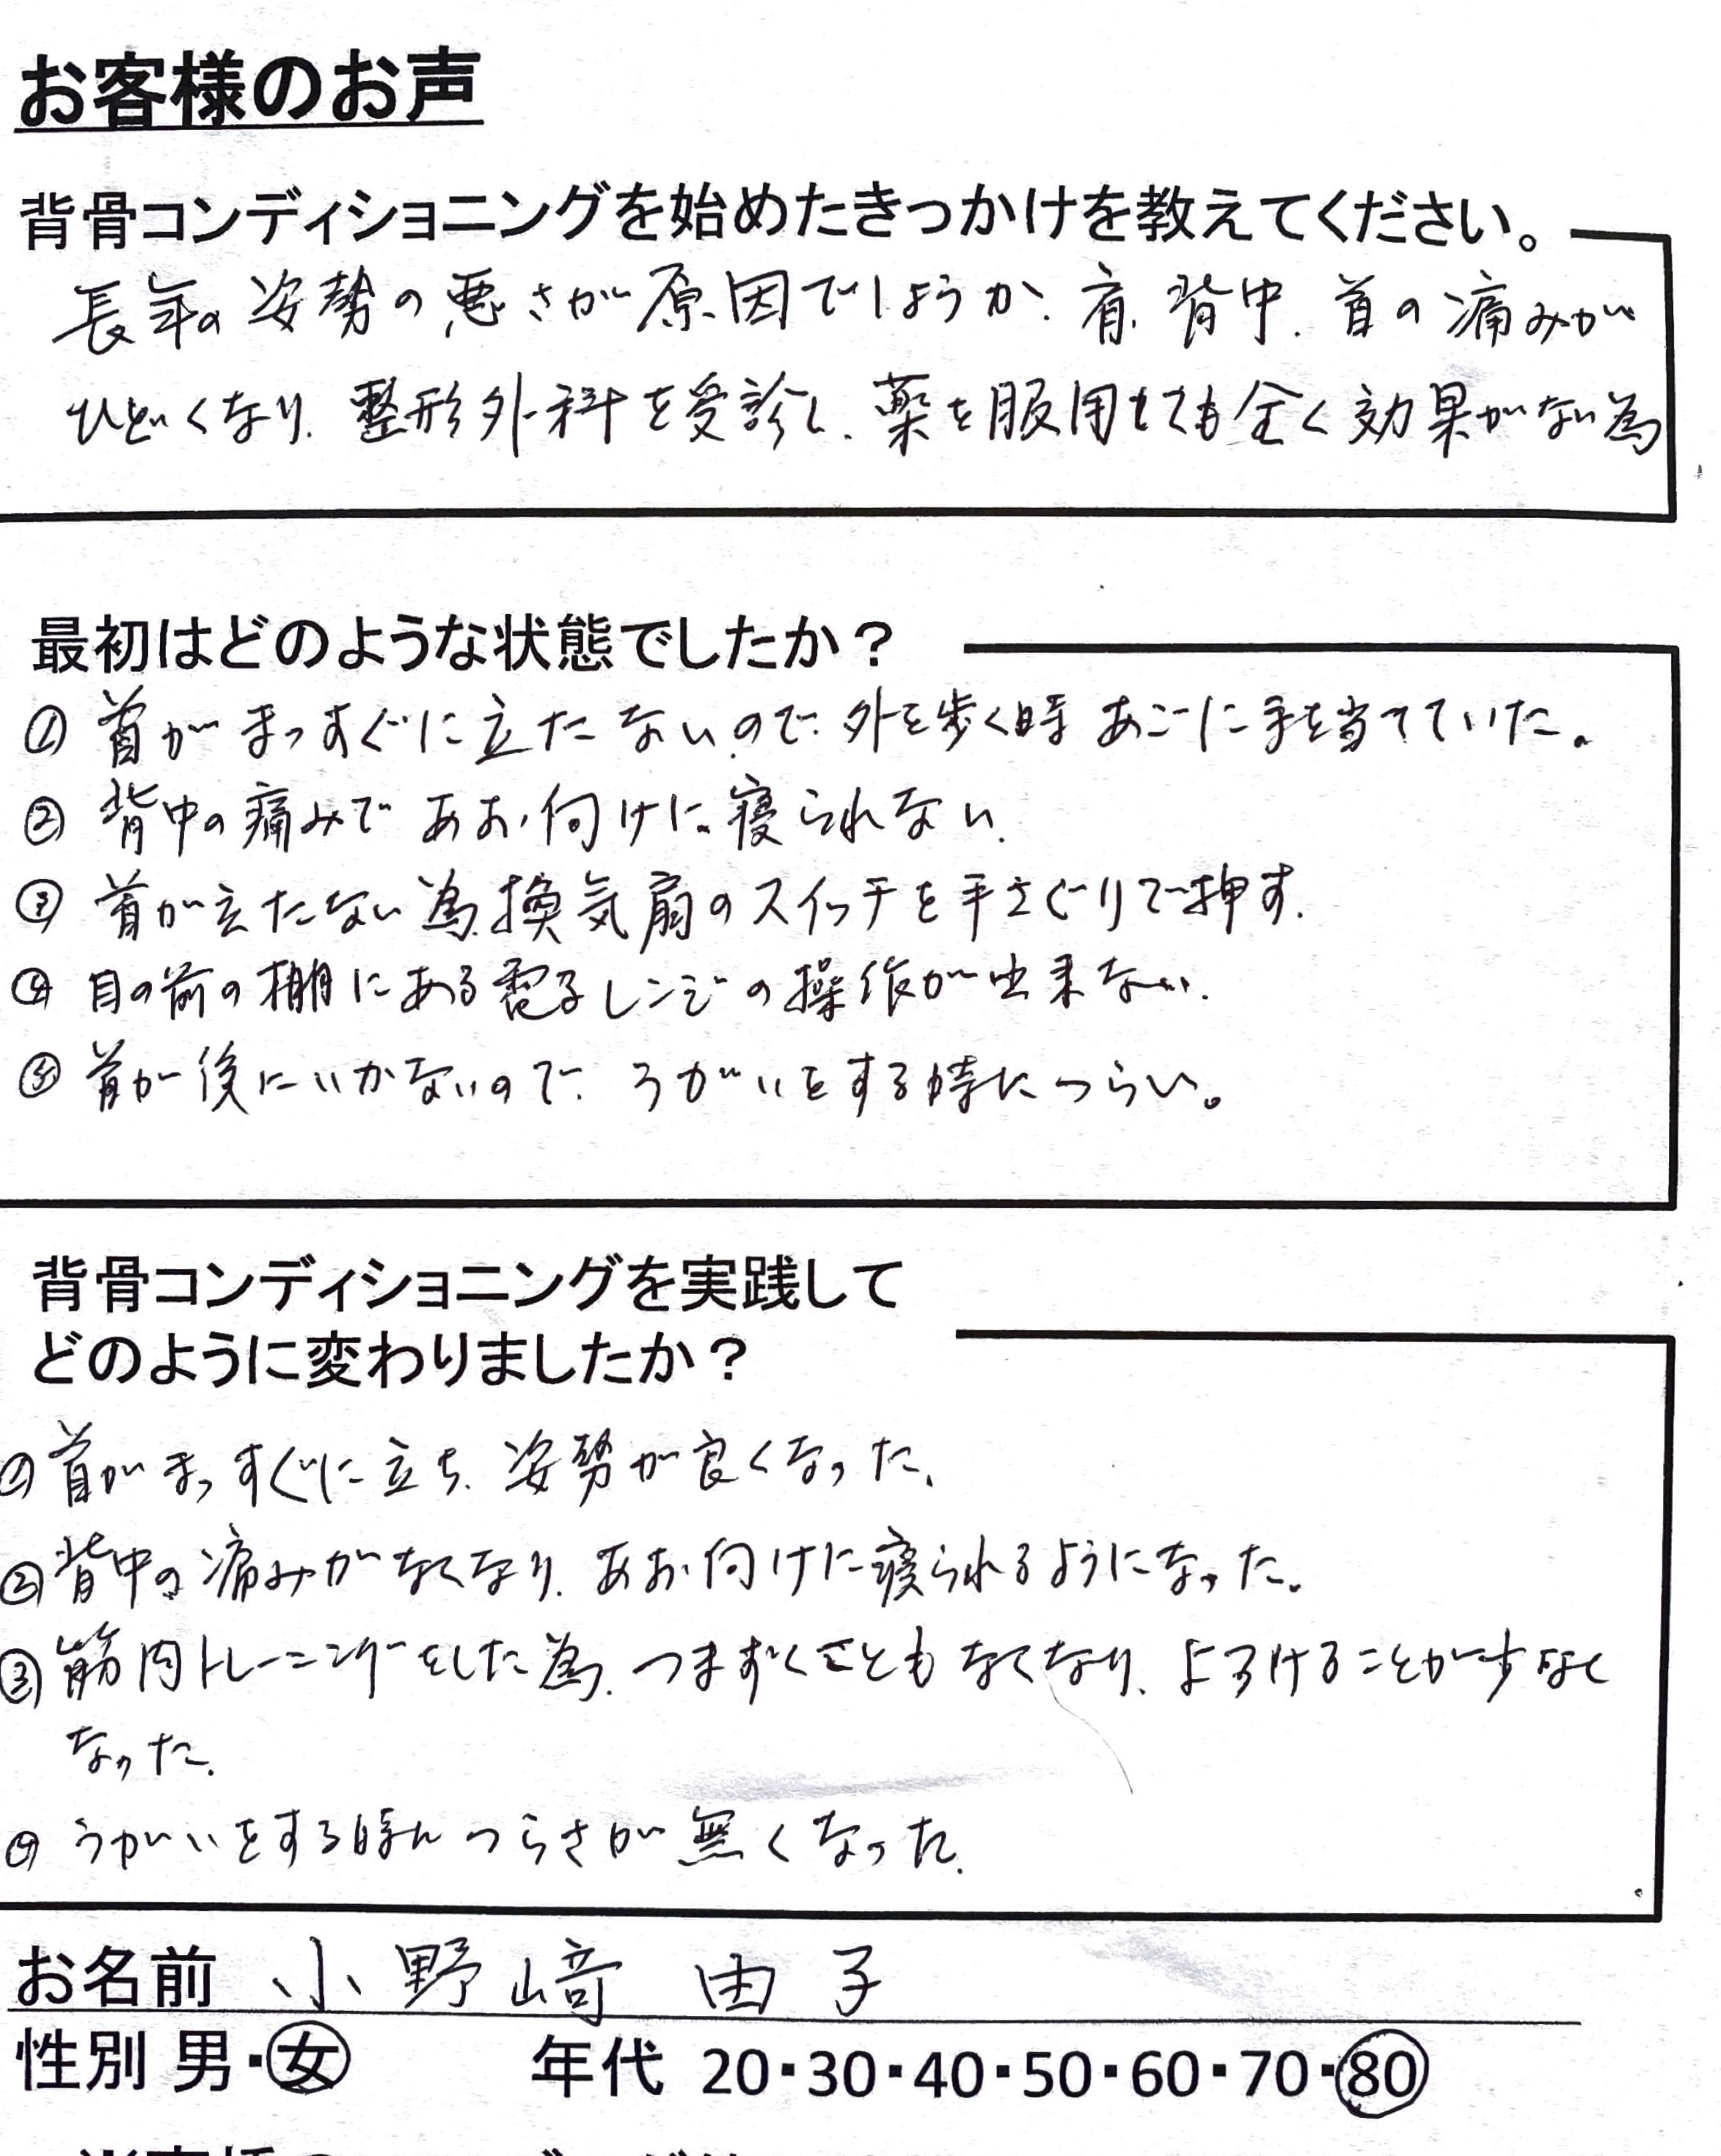 お客様のお声
背骨コンディショニングを始めたきっかけを教えてください。
長年の姿勢の悪さが原因でしょうか、肩、背中、首の痛みが
ひどくなり、整形外科を受診し、薬を服用しても全く効果がない為
最初はどのような状態でしたか？
① 首がまっすぐに立たないので、外を歩く時あごに手を当てていた。
② 背中の痛みであお向けに寝られない、
③ 首が立たない為、換気扇のスイッチを手さぐりで押す、
④ 目の前の棚にある電子レンジの操作が出来ない、
⑤ 首が後にいかないので、うがいをする時につらい。
背骨コンディショニングを実践して
どのように変わりましたか？
① 首がまっすぐに立ち、姿勢が良くなった、
② 背中の痛みがなくなり、あお向けに寝られるようになった。
③ 筋肉トレーニングをした為、つまずくこともなくなり、よろけることが少なく
なった、
④ うがいをする時んつらさが無くなった、
お名前 小野﨑 由子
性別 男・女 年代 20・30・40・50・60・70・80